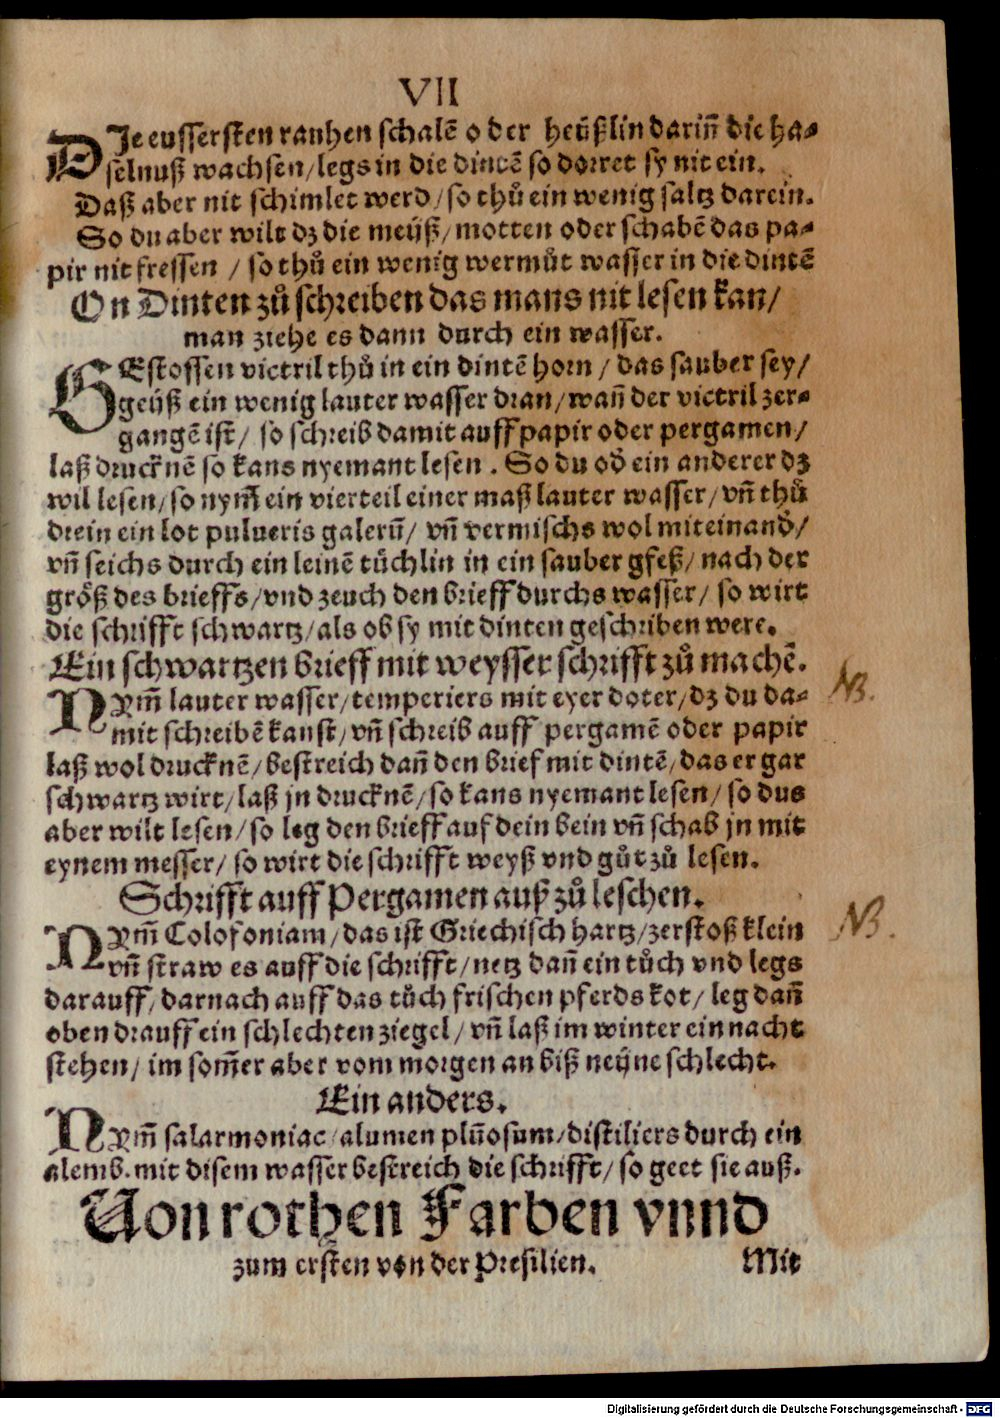 VII
DIe eussersten rauhen schalē oder heüßlin dariñ die ha⸗
selnuß wachsen/legs in die dintē so dorret sy nit ein.
Daß aber nit schimlet werd/so thů ein wenig saltz darein.
So du aber wilt dz die meüß/motten oder schabē das pa⸗
pir nit fressen / so thů ein wenig wermůt wasser in die dintē
On Dinten zů schreiben das mans nit lesen kan/
man ziehe es dann durch ein wasser.
GEstossen victril thů in ein dintē horn / das sauber sey/
geüß ein wenig lauter wasser dran/wañ der victril zer⸗
gangē ist/ so schreib damit auff papir oder pergamen/
laß drucknē so kans nyemant lesen . So du od̕ ein anderer dz
wil lesen/so nym̃ ein vierteil einer maß lauter wasser/vñ thů
drein ein lot pulueris galerū/ vñ vermischs wol miteinand̕/
vñ seichs durch ein leinē tůchlin in ein sauber gfeß/nach der
grôß des brieffs/vnd zeuch den brieff durchs wasser/ so wirt
die schrifft schwartz/als ob sy mit dinten geschriben were.
Ein schwartzen brieff mit weysser schrifft zů machē.
NYm̃ lauter wasser/temperiers mit eyer doter/dz du da⸗
mit schreibē kanst/vñ schreib auff pergamē oder papir
laß wol drucknē/bestreich dañ den brief mit dintē/das er gar
schwartz wirt/laß jn drucknē/so kans nyemant lesen/so dus
aber wilt lesen/so leg den brieff auf dein bein vñ schab jn mit
eynem messer/ so wirt die schrifft weyß vnd gůt zů lesen.
NB.
Schrifft auff Pergamen auß zů leschen.
NYm̃ Colofoniam/das ist Griechisch hartz/zerstoß klein
vñ straw es auff die schrifft/netz dañ ein tůch vnd legs
darauff/darnach auff das tůch frischen pferds kot/leg dañ
oben drauff ein schlechten ziegel/vñ laß im winter ein nacht
stehen/ im som̃er aber vom morgen an biß neüne schlecht.
NB.
Ein anders.
NYm̃ salarmoniac/alumen plūosum/distiliers durch ein
alemb. mit disem wasser bestreich die schrifft/so geet sie auß.
Uon rothen Farben vnnd
zum ersten von der Presilien.
Mit
Digitalisierung gefördert durch die Deutsche Forschungsgemeinschaft - DFG